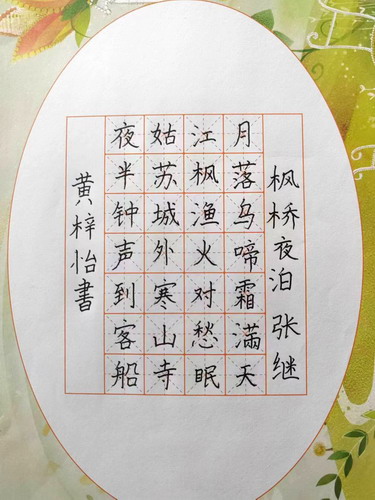 枫桥夜泊 张继
月落乌啼霜满天
江枫渔火对愁眠
姑苏城外寒山寺
夜半钟声到客船
黄梓怡書